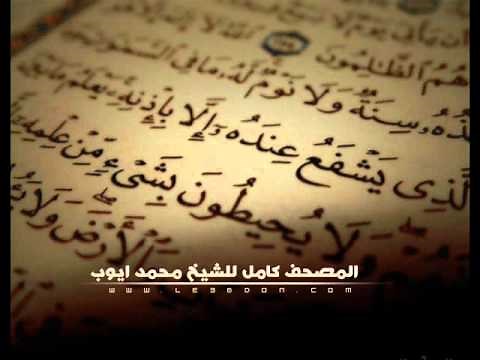 أَن يَأْتِىَ يَوْمٌ لَّا
هُمُ ٱلظَّـٰلِمُونَ ٱللَّهُ لَآ
خُذُهُۥ سِنَةٌ وَلَا نَوْمٌ لَّهُۥ مَا فِى ٱلسَّمَـٰوَٰ
لَّذِى يَشْفَعُ عِندَهُۥٓ إِلَّا بِإِذْنِهِۦ يَعْلَمُ مَا بَيْ
وَلَا يُحِيطُونَ بِشَىْءٍ مِّنْ عِلْمِهِۦٓ
ٱلْأَرْضَ وَلَا
المصحف كامل للشيخ محمد ايوب
WWW.LE3BDON.COM